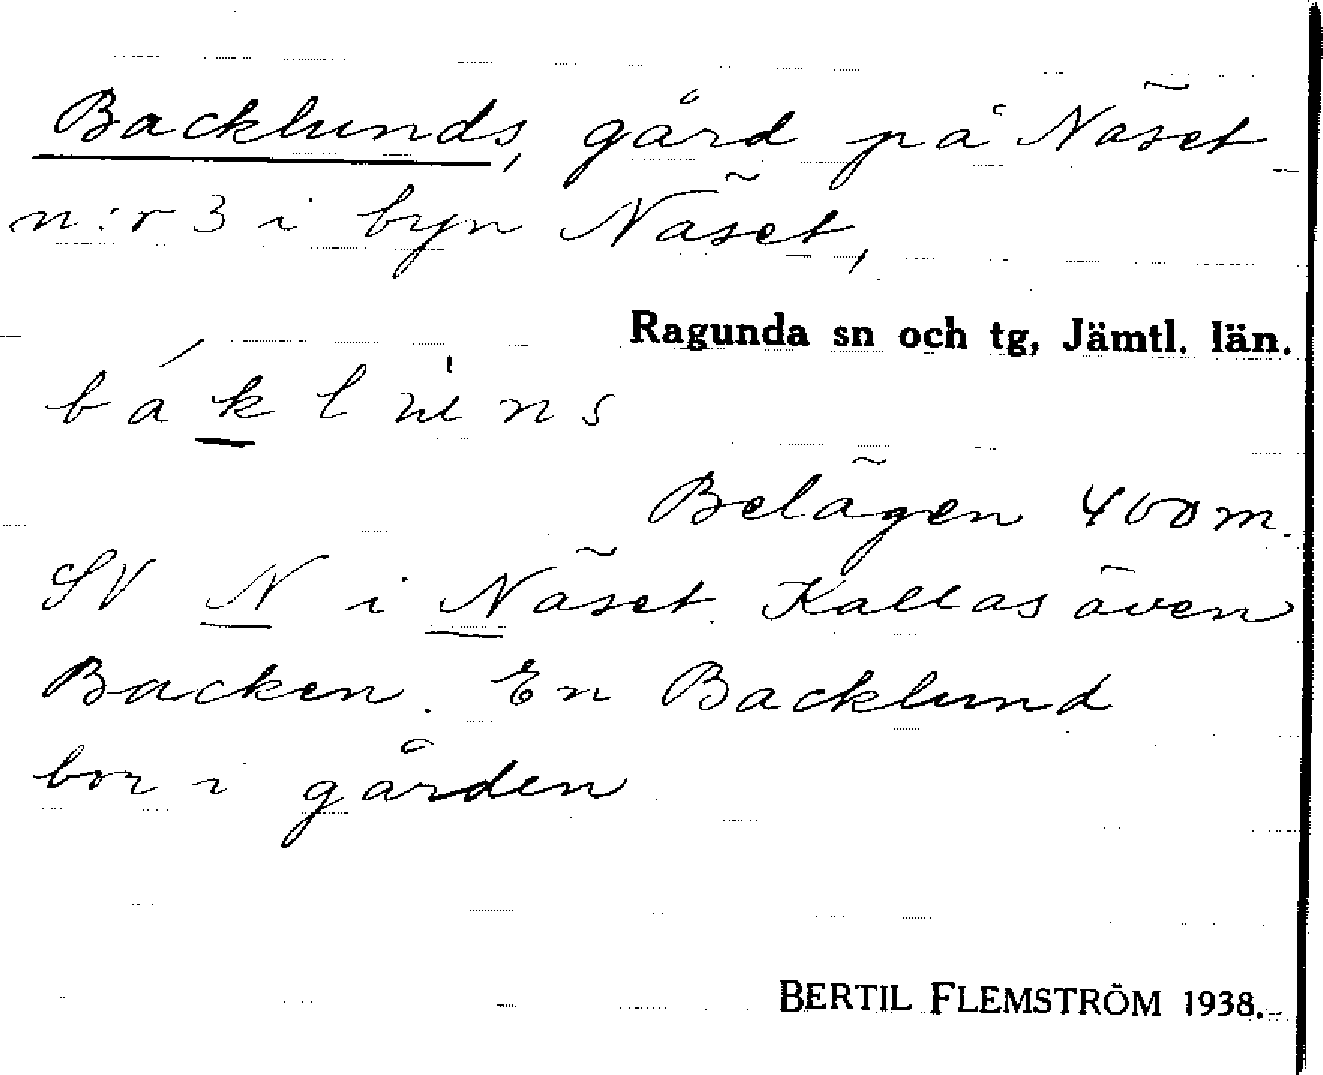 Backlunds, gård på Näset
n:r 3 i byn Näset,
Ragunda sn och tg, Jämtl. län.
Belägen 400 m.
SV N i Näset. Kallas även
Backen. En Backlund
bor i gården
BERTIL FLEMSTRÖM 1938.